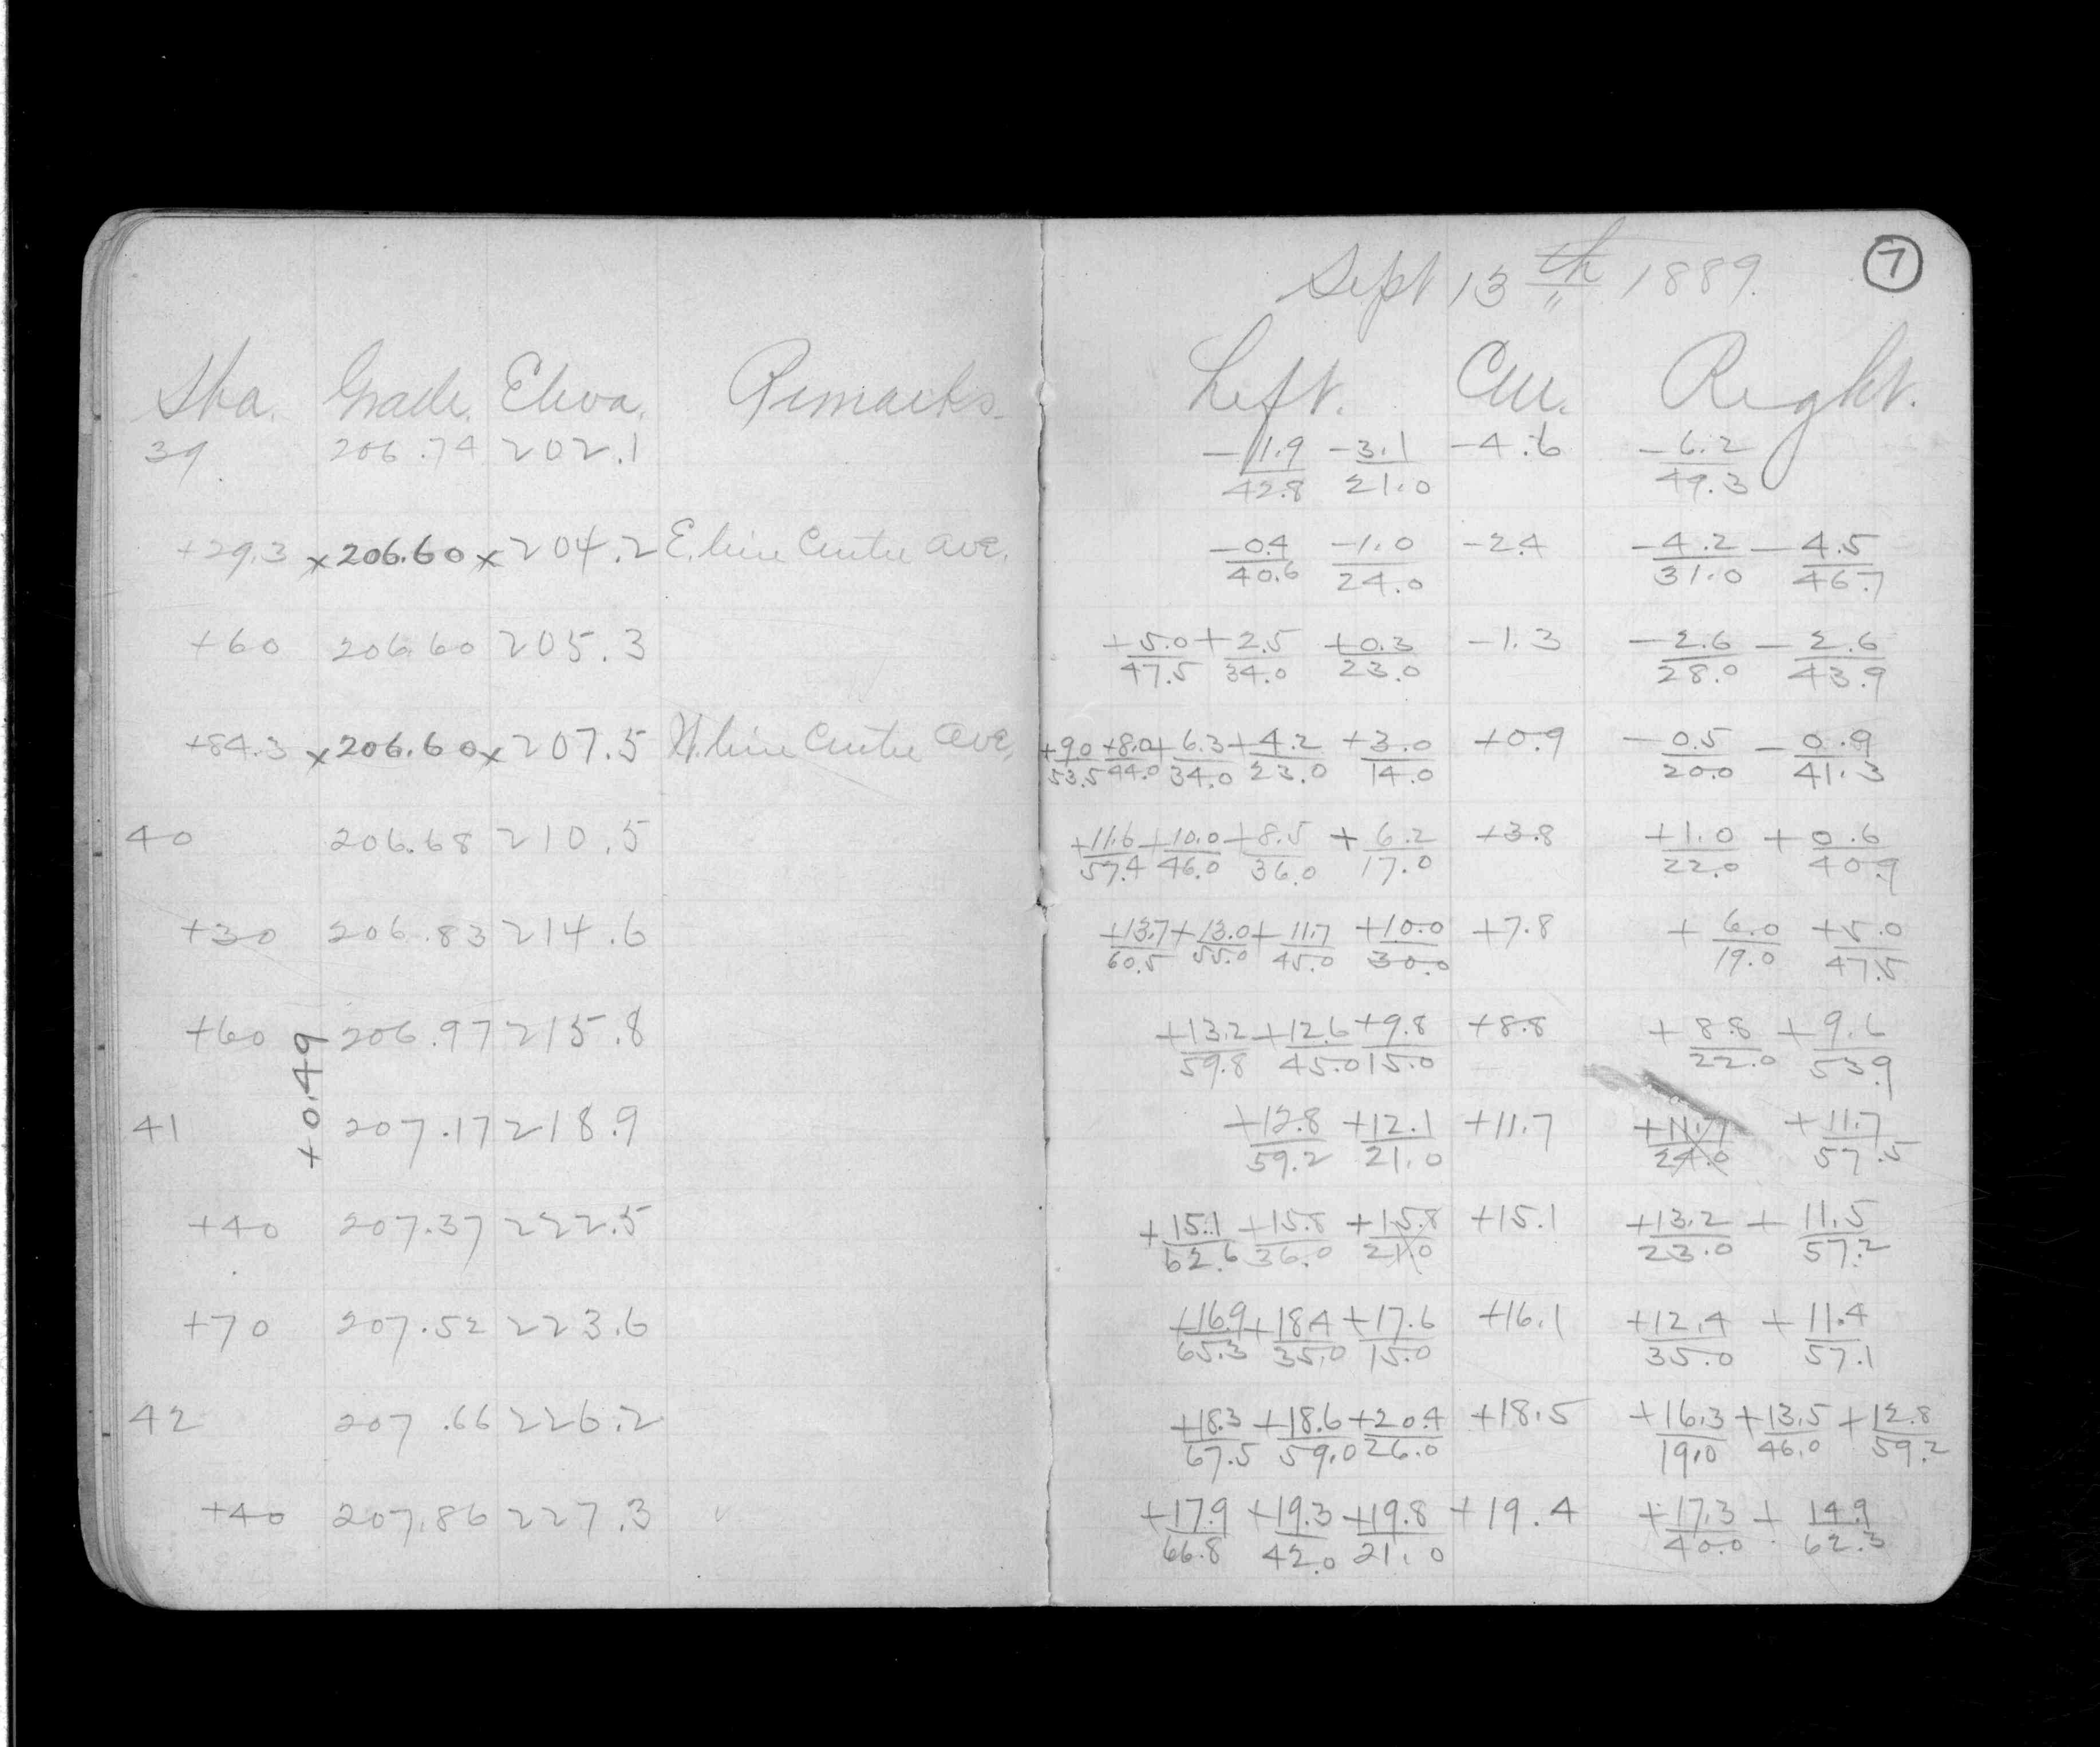 Sept 13th 1889. 7
Sta. Grade. Eleva. Remarks. Left. Cen. Right.
39 206.74 202.1 -11.9/42.8 -3.1/21.0 -4.6 -6.2/49.3
+29.3 x 206.60 x 204.2 E. line Centre Ave. -0.4/40.6 -1.0/24.0 -2.4 -4.2/31.0 -4.5/46.7
+60 206.60 205.3 +5.0/47.5 +2.5/34.0 +0.3/23.0 -1.3 -2.6/28.0 -2.6/43.9
+84.3 x 206.60 x 207.5 W. line Centre Ave. +9.0/53.5 +8.0/44.0 +6.3/34.0 +4.2/23.0 +3.0/14.0 +0.9 -0.5/20.0 -0.9/41.3
40 206.68 210.5 +11.6/57.4 +10.0/46.0 +8.5/36.0 +6.2/17.0 +3.8 +1.0/22.0 +0.6/40.9
+30 206.83 214.6 +13.7/60.5 +13.0/55.0 +11.7/45.0 +10.0/30.0 +7.8 +6.0/19.0 +5.0/47.5
+60 206.97 215.8 +13.2/59.8 +12.6/45.0 +9.8/15.0 +8.8 +8.8/22.0 +9.6/53.9
+0.49
41 207.17 218.9 +12.8/59.2 +12.1/21.0 +11.7 +11.7/24.0 +11.7/57.5
+40 207.37 222.5 +15.1/62.6 +15.8/36.0 +15.8/21.0 +15.1 +13.2/23.0 +11.5/57.2
+70 207.52 223.6 +16.9/65.3 +18.4/35.0 +17.6/15.0 +16.1 +12.4/35.0 +11.4/57.1
42 207.66 226.2 +18.3/67.5 +18.6/59.0 +20.4/26.0 +18.5 +16.3/19.0 +13.5/46.0 +12.8/59.2
+40 207.86 227.3 +17.9/66.8 +19.3/42.0 +19.8/21.0 +19.4 +17.3/40.0 +14.9/62.3